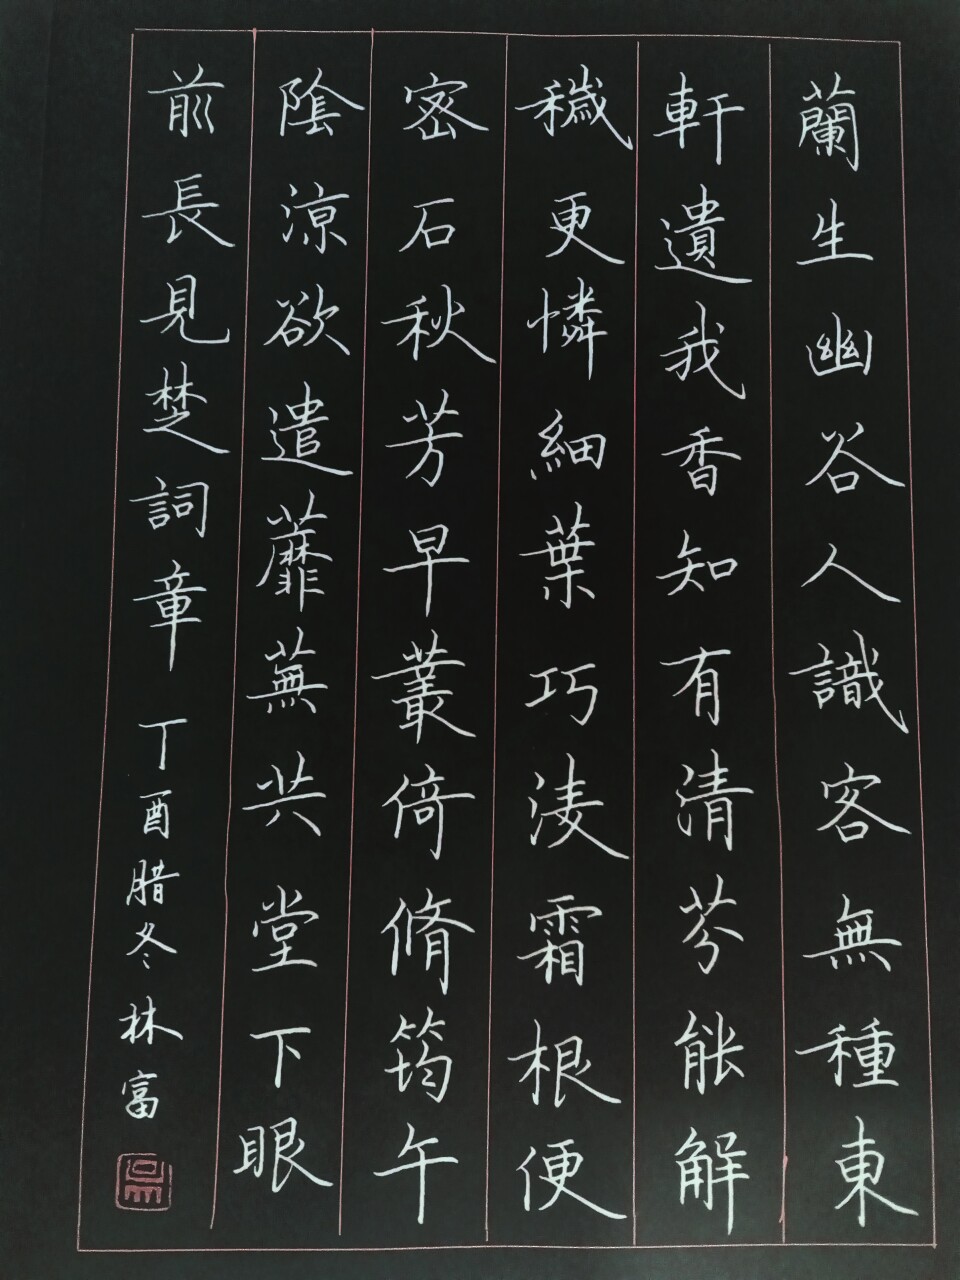 蘭生幽谷人識客無種東
軒遺我香知有清芬能解
穢更憐細葉巧淩霜根便
密石秋芳早叢倚脩筠午
陰涼欲遣蘼蕪共堂下眼
前長見楚詞章丁酉腊冬林富